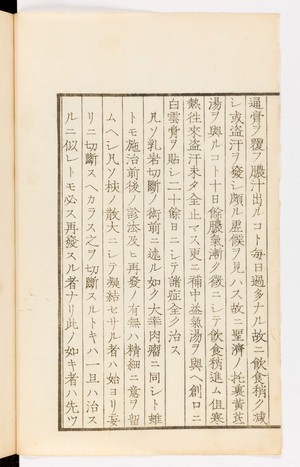 通膏ヲ覆フ膿汁出ルコト毎日過多ナル故ニ飲食稍ク減
シ或盗汗ヲ發シ頗ル虚候ヲ見ハス故ニ聖濟ノ托裏黄芪
湯ヲ與ルコト十日餘膿氣漸ク微ニシテ飲食稍進ム但寒
熱徃來盗汗未タ全止マス更ニ補中益氣湯ヲ與ヘ創口ニ
白雲膏ヲ貼シ二十餘日ニシテ諸症全ク治ス
凡ソ乳岩切斷ノ術前ニ述ル如ク大率肉瘤ニ同シト雖
トモ施治前後ノ診法及ヒ再發ノ有無ハ精細ニ意ヲ留
ムヘシ凡ソ核ノ散大ニシテ凝結セサル者ハ始ヨリ妄
リニ切斷スヘカラス之ヲ切斷スルトキハ一旦ハ治ス
ルニ似レトモ必ス再發スル者ナリ此ノ如キ者ハ先ツ